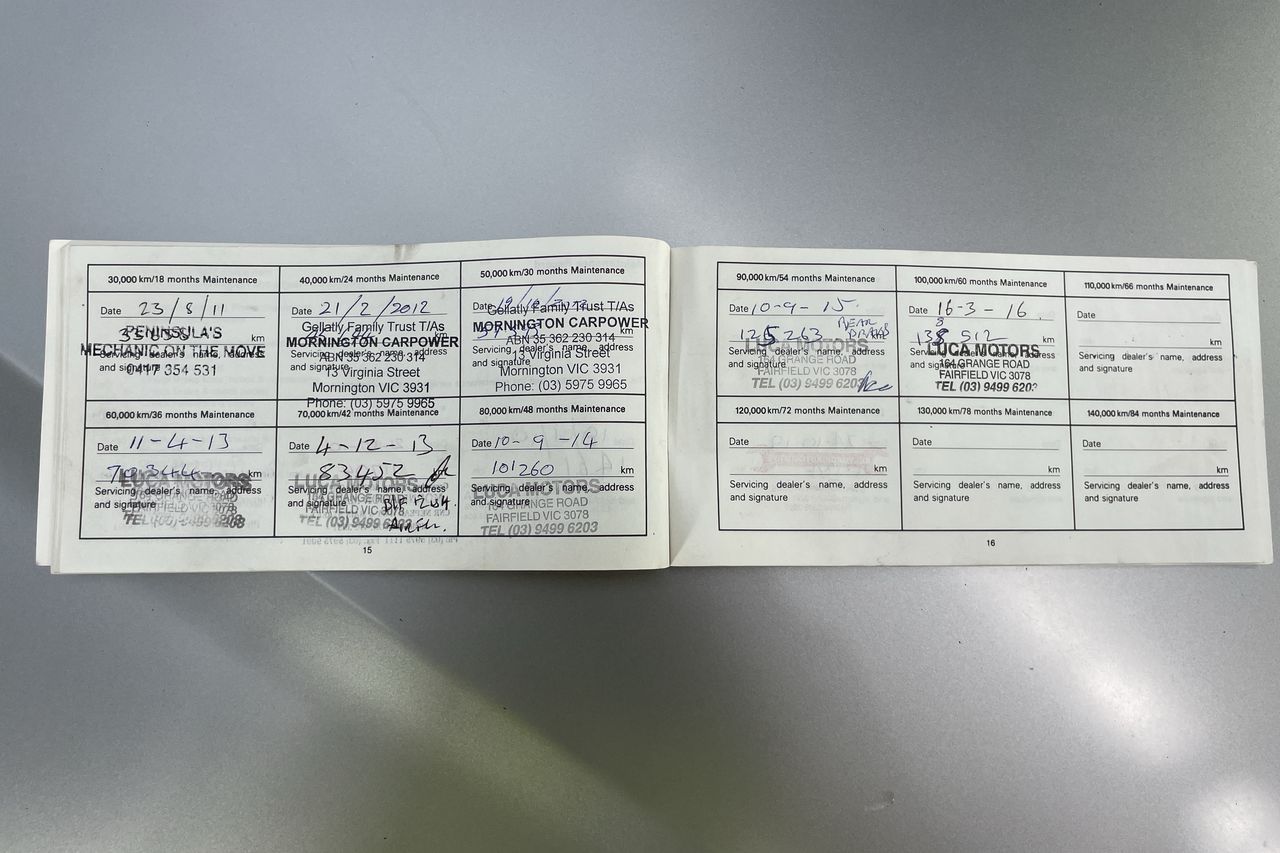 30,000 km/18 months Maintenance
Date 23/8/11
km
PENINSULA'S
MECHANIC ON THE MOVE
Servicing dealer's name, address
and signature
0417 354 531
40,000 km/24 months Maintenance
Date 21/2/2012
Gellatly Family Trust T/As
km
MORNINGTON CARPOWER
Servicing dealer's name, address
and signature
ABN 35 362 230 314
13 Virginia Street
Mornington VIC 3931
Phone: (03) 5975 9965
50,000 km/30 months Maintenance
Date
Gellatly Family Trust T/As
MORNINGTON CARPOWER
km
ABN 35 362 230 314
Servicing dealer's name, address
and signature
13 Virginia Street
Mornington VIC 3931
Phone: (03) 5975 9965
60,000 km/36 months Maintenance
Date 11-4-13
km
LUCA MOTORS
Servicing dealer's name, address
and signature
FAIRFIELD VIC 3078
70,000 km/42 months Maintenance
Date 4-12-13
83452
LUCA MOTORS
Servicing dealer's name, address
and signature
164 GRANGE ROAD
FAIRFIELD VIC 3078
TEL (03) 9499 6203
80,000 km/48 months Maintenance
Date 10-9-14
101260 km
LUCA MOTORS
Servicing dealer's name, address
and signature
164 GRANGE ROAD
FAIRFIELD VIC 3078
TEL (03) 9499 6203
15
90,000 km/54 months Maintenance
Date 10-9-15
REAR
125263 km
LUCA MOTORS
Servicing dealer's name, address
and signature
164 GRANGE ROAD
FAIRFIELD VIC 3078
TEL (03) 9499 6203
100,000 km/60 months Maintenance
Date 16-3-16
km
LUCA MOTORS
Servicing dealer's name, address
and signature
164 GRANGE ROAD
FAIRFIELD VIC 3078
TEL (03) 9499 6203
110,000 km/66 months Maintenance
Date
km
Servicing dealer's name, address
and signature
120,000 km/72 months Maintenance
Date
km
Servicing dealer's name, address
and signature
130,000 km/78 months Maintenance
Date
km
Servicing dealer's name, address
and signature
140,000 km/84 months Maintenance
Date
km
Servicing dealer's name, address
and signature
16